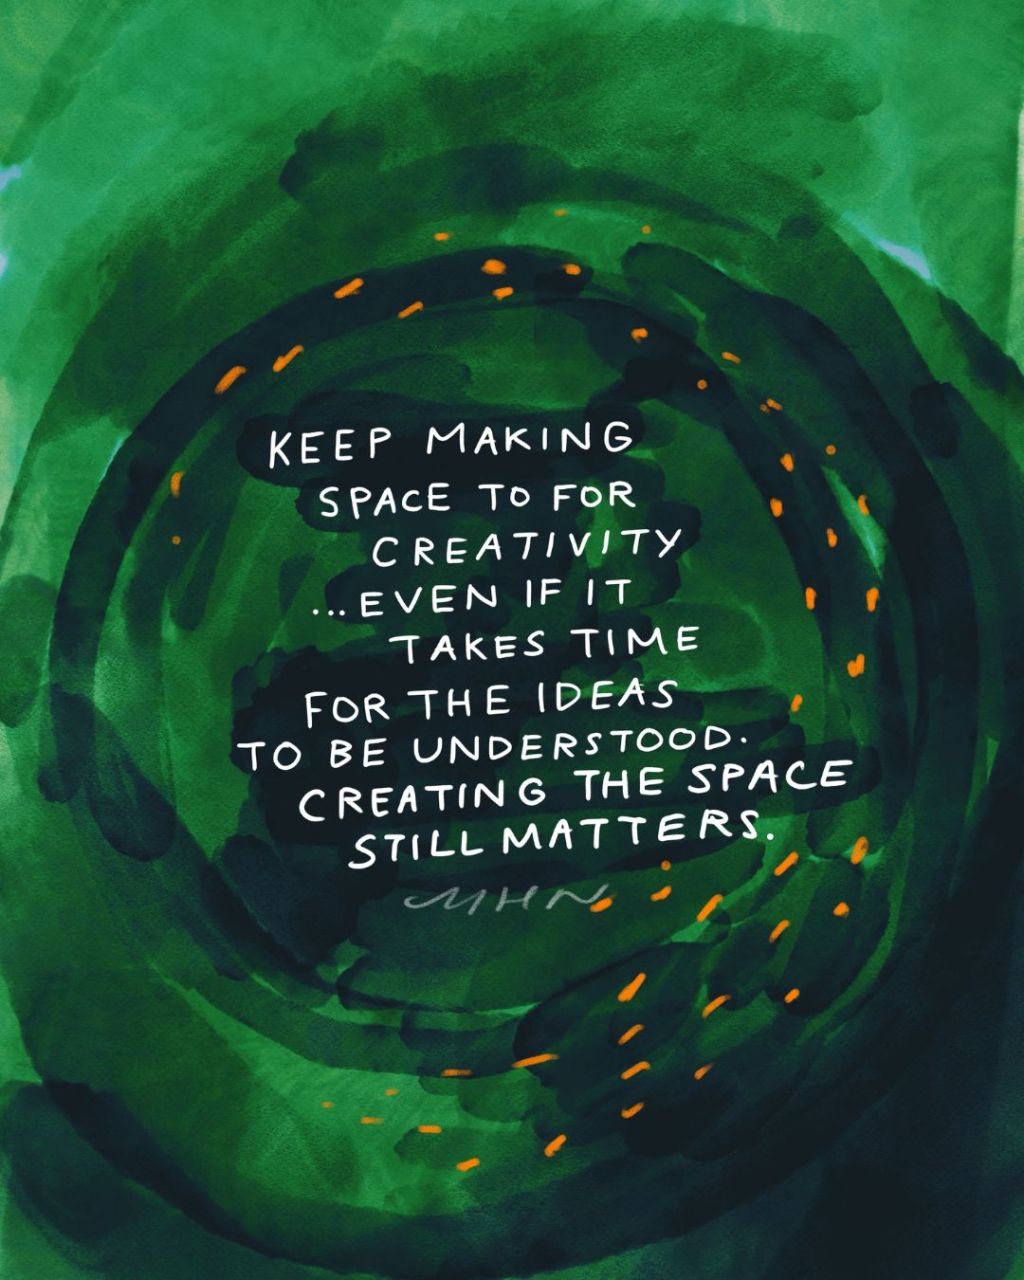 KEEP MAKING
SPACE TO FOR
CREATIVITY
...EVEN IF IT
TAKES TIME
FOR THE IDEAS
TO BE UNDERSTOOD.
CREATING THE SPACE
STILL MATTERS.
MHN